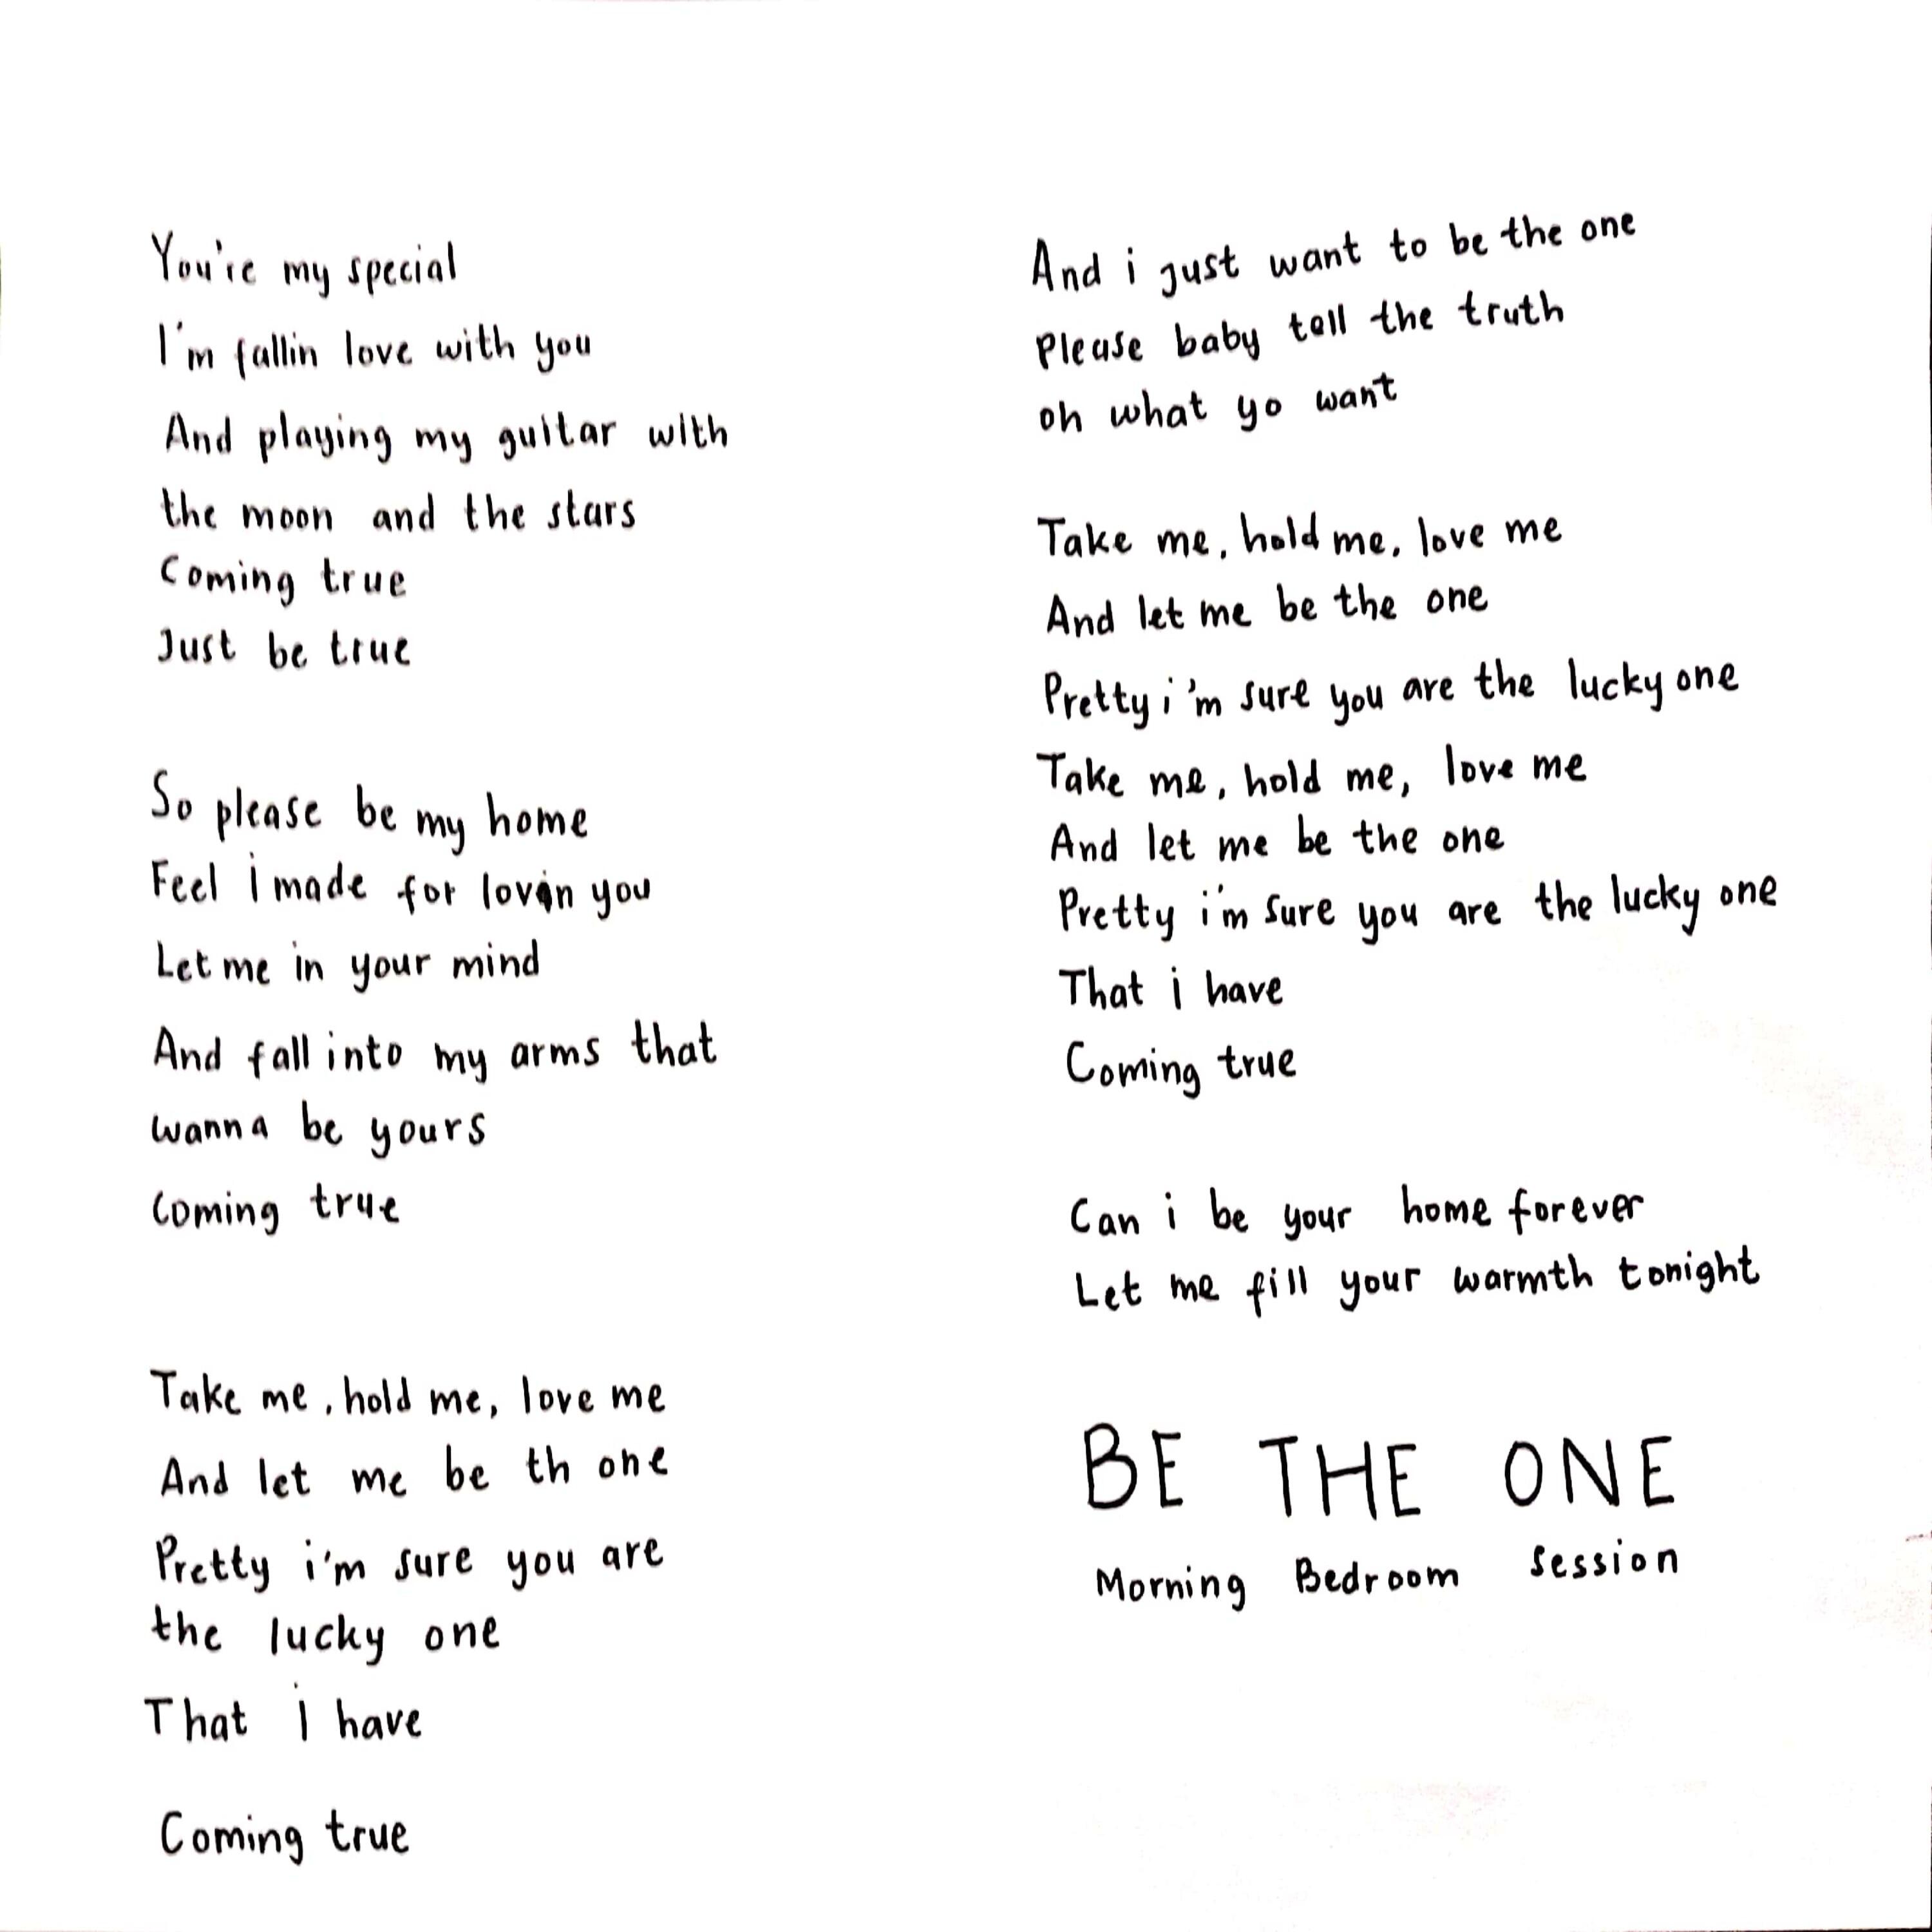 You're my special
I'm fallin love with you
And playing my guitar with
the moon and the stars
Coming true
Just be true
So please be my home
Feel i made for lovin you
Let me in your mind
And fall into my arms that
wanna be yours
Coming true
Take me, hold me, love me
And let me be th one
Pretty i'm sure you are
the lucky one
That i have
Coming true
And i just want to be the one
Please baby tell the truth
oh what yo want
Take me, hold me, love me
And let me be the one
Pretty i'm sure you are the lucky one
Take me, hold me, love me
And let me be the one
Pretty i'm sure you are the lucky one
That i have
Coming true
Can i be your home forever
Let me fill your warmth tonight
BE THE ONE
Morning Bedroom session